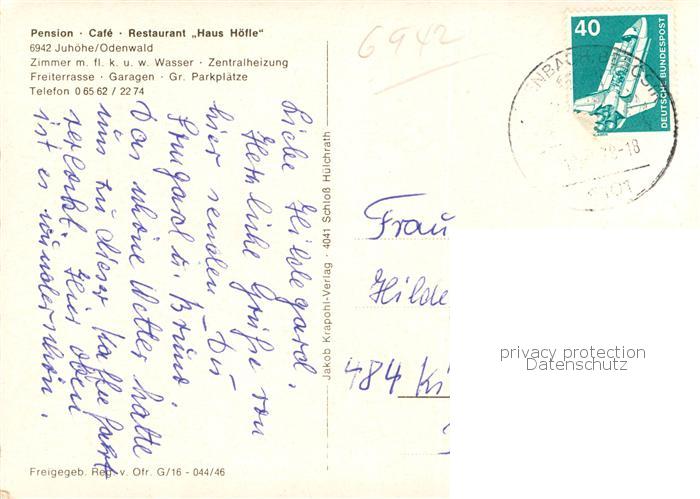 Pension · Café · Restaurant „Haus Höfle"
6942 Juhöhe/Odenwald
Zimmer m. fl. k. u. w. Wasser · Zentralheizung
Freiterrasse · Garagen · Gr. Parkplätze
Telefon 0 65 62 / 22 74
6942
40
DEUTSCHE BUNDESPOST
-18
Liebe Hildegard,
Herzliche Grüße von
hier senden Dir
Irmgard u. Bruno.
Das schöne Wetter hatte
uns zu dieser Kaffeefahrt
verlockt. Hier oben
ist es wunderschön.
Jakob Krapohl-Verlag · 4041 Schloß Hülchrath
Frau
Hilde
484
privacy protection
Datenschutz
Freigegeb. Reg. v. Ofr. G/16 - 044/46